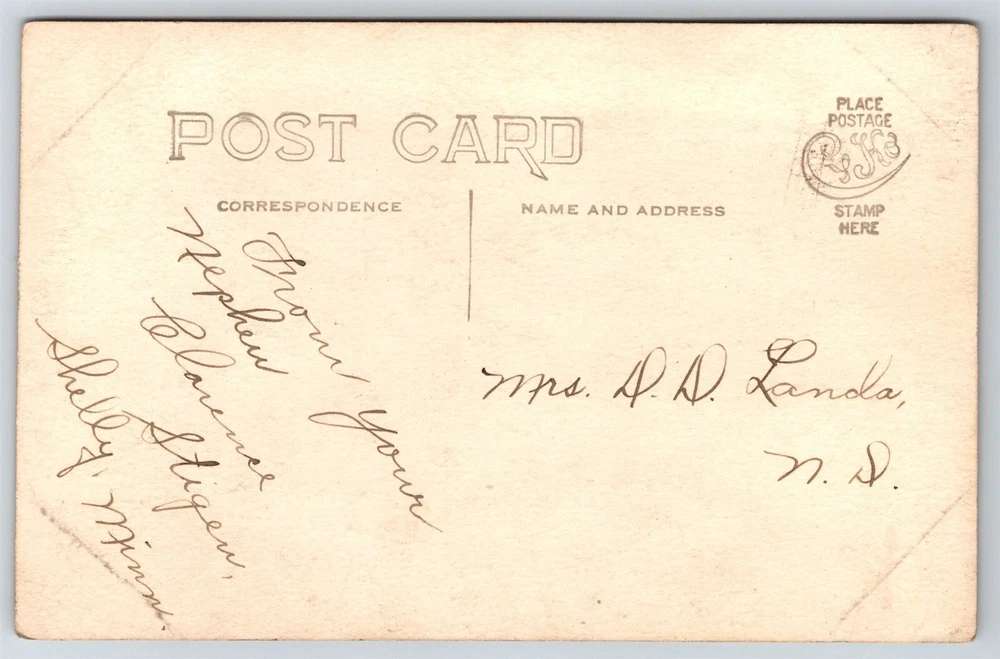 POST CARD
CORRESPONDENCE
NAME AND ADDRESS
PLACE
POSTAGE
STAMP
HERE
From Your
Nephew
Clarence Stigen,
Shelly, Minn.
Mrs. D. D. Landa,
N. D.